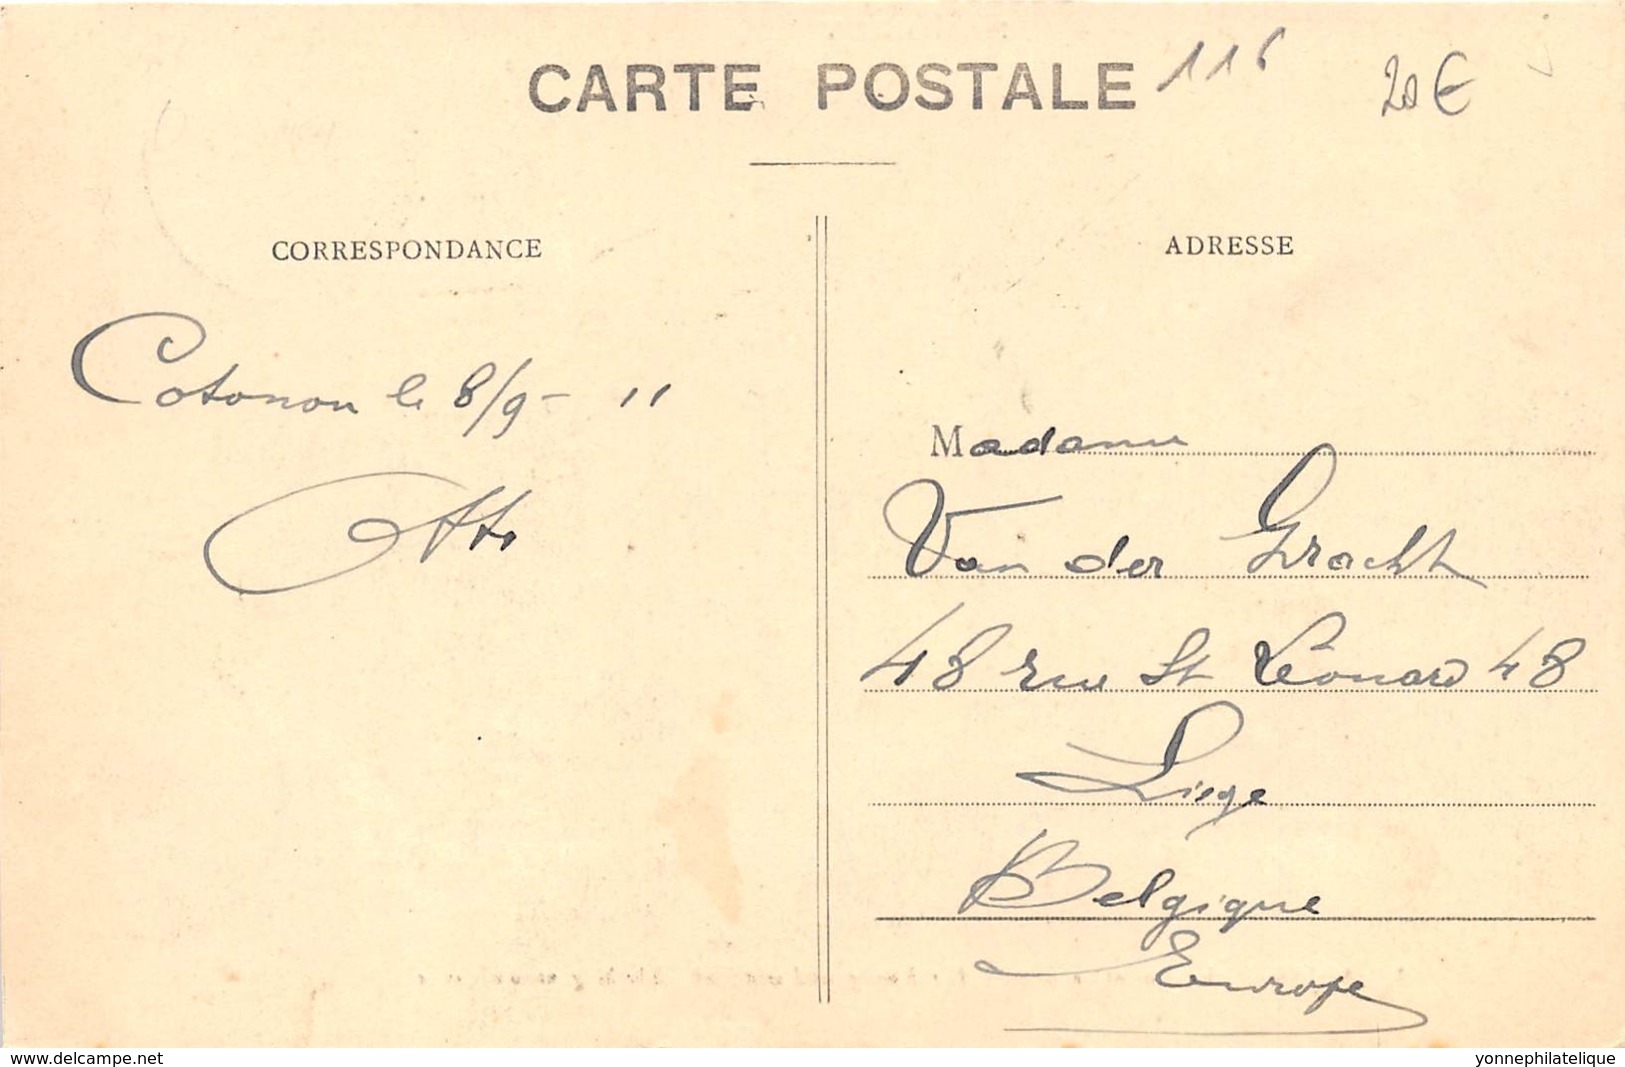 CARTE POSTALE
116
20€
CORRESPONDANCE
Cotonou le 8/9 - 11
Otto
ADRESSE
Madame
Van der Gracht
48 rue St Léonard 48
Liege
Belgique
Europe
www.delcampe.net
yonnephilatelique